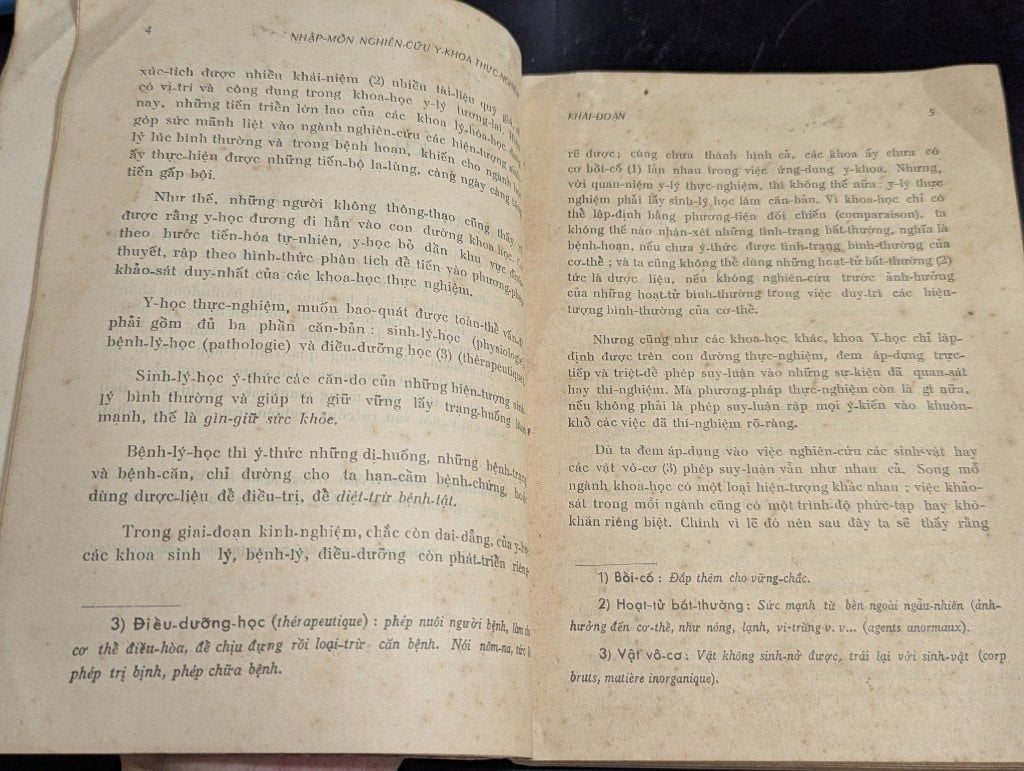 4
NHẬP-MÔN NGHIÊN-CỨU Y-KHOA THỰC-NGHIỆM
xúc-tích được nhiều khái-niệm (2) nhiều tài-liệu quý giá,
có vị-trí và công dụng trong khoa-học y-lý tương-lai.
nay, những tiến triển lớn lao của các khoa lý-hóa-học
góp sức mãnh liệt vào ngành nghiên-cứu các hiện-tượng
lý lúc bình thường và trong bệnh hoạn, khiến cho ngành
ấy thực-hiện được những tiến-bộ lạ-lùng, càng ngày càng
tiến gấp bội.
Như thế, những người không thông-thạo cũng thấy
được rằng y-học đương đi hẳn vào con đường khoa-học.
theo bước tiến-hóa tự-nhiên, y-học bỏ dần khu vực
thuyết, rập theo hình-thức phân tích để tiến vào phương-pháp
khảo-sát duy-nhất của các khoa-học thực nghiệm.
Y-học thực-nghiệm, muốn bao-quát được toàn-thể vấn-đề
phải gồm đủ ba phần căn-bản : sinh-lý-học (physiologie
bệnh-lý-học (pathologie) và điều-dưỡng học (3) (thérapeutique)
Sinh-lý-học ý-thức các căn-do của những hiện-tượng sinh
lý bình thường và giúp ta giữ vững lấy trạng-huống
mạnh, thế là gìn-giữ sức khỏe.
Bệnh-lý-học thì ý-thức những dị-huống, những bệnh-trạng
và bệnh-căn, chỉ đường cho ta han-cầm bệnh-chứng, hoặc
dùng dược-liệu để điều-trị, để diệt-trừ bệnh-tật.
Trong giai-đoạn kinh-nghiệm, chắc còn dai-dẳng, của
các khoa sinh lý, bệnh-lý, điều-dưỡng còn phát-triển riêng
3) Điều-dưỡng-học (thérapeutique) : phép nuôi người bệnh, làm cho
cơ thể điều-hòa, để chịu đựng rồi loại-trừ căn bệnh. Nói nôm-na, tức là
phép trị bịnh, phép chữa bệnh.
KHÁI-ĐOẠN
5
rẽ được; cũng chưa thành hình cả, các khoa ấy chưa có
cơ bồi-cố (1) lẫn nhau trong việc ứng-dụng y-khoa. Nhưng,
với quan-niệm y-lý thực-nghiệm, thì không thế nữa : y-lý thực
nghiệm phải lấy sinh-lý học làm căn-bản. Vì khoa-học chỉ có
thể lập-định bằng phương-tiện đối chiếu (comparaison), ta
không thể nào nhận-xét những tình-trạng bất-thường, nghĩa là
bệnh-hoạn, nếu chưa ý-thức được tình-trạng bình-thường của
cơ-thể ; và ta cũng không thể dùng những hoạt-tử bất-thường (2)
tức là dược liệu, nếu không nghiên-cứu trước ảnh-hưởng
của những hoạt-tử bình-thường trong việc duy-trì các hiện-
tượng bình-thường của cơ-thể.
Nhưng cũng như các khoa-học khác, khoa Y-học chỉ lập-
định được trên con đường thực-nghiệm, đem áp-dụng trực-
tiếp và triệt-để phép suy-luận vào những sự-kiện đã quan-sát
hay thí-nghiệm. Mà phương-pháp thực-nghiệm còn là gì nữa,
nếu không phải là phép suy-luận rập mọi ý-kiến vào khuôn-
khổ các việc đã thí-nghiệm rõ-ràng.
Dù ta đem áp-dụng vào việc nghiên-cứu các sinh-vật hay
các vật vô-cơ (3) phép suy-luận vẫn như nhau cả. Song mỗ
ngành khoa-học có một loại hiện-tượng khác nhau ; việc khảo-
sát trong mỗi ngành cũng có một trình-độ phức-tạp hay khó-
khăn riêng biệt. Chính vì lẽ đó nên sau đây ta sẽ thấy rằng
1) Bồi-cố : Đắp thêm cho vững-chắc.
2) Hoạt-tử bất-thường : Sức mạnh từ bên ngoài ngẫu-nhiên (ảnh-
hưởng đến cơ-thể, như nóng, lạnh, vi-trùng v. v... (agents anormaux).
3) Vật vô-cơ : Vật không sinh-nở được, trái lại với sinh-vật (corp
bruts, matière inorganique).